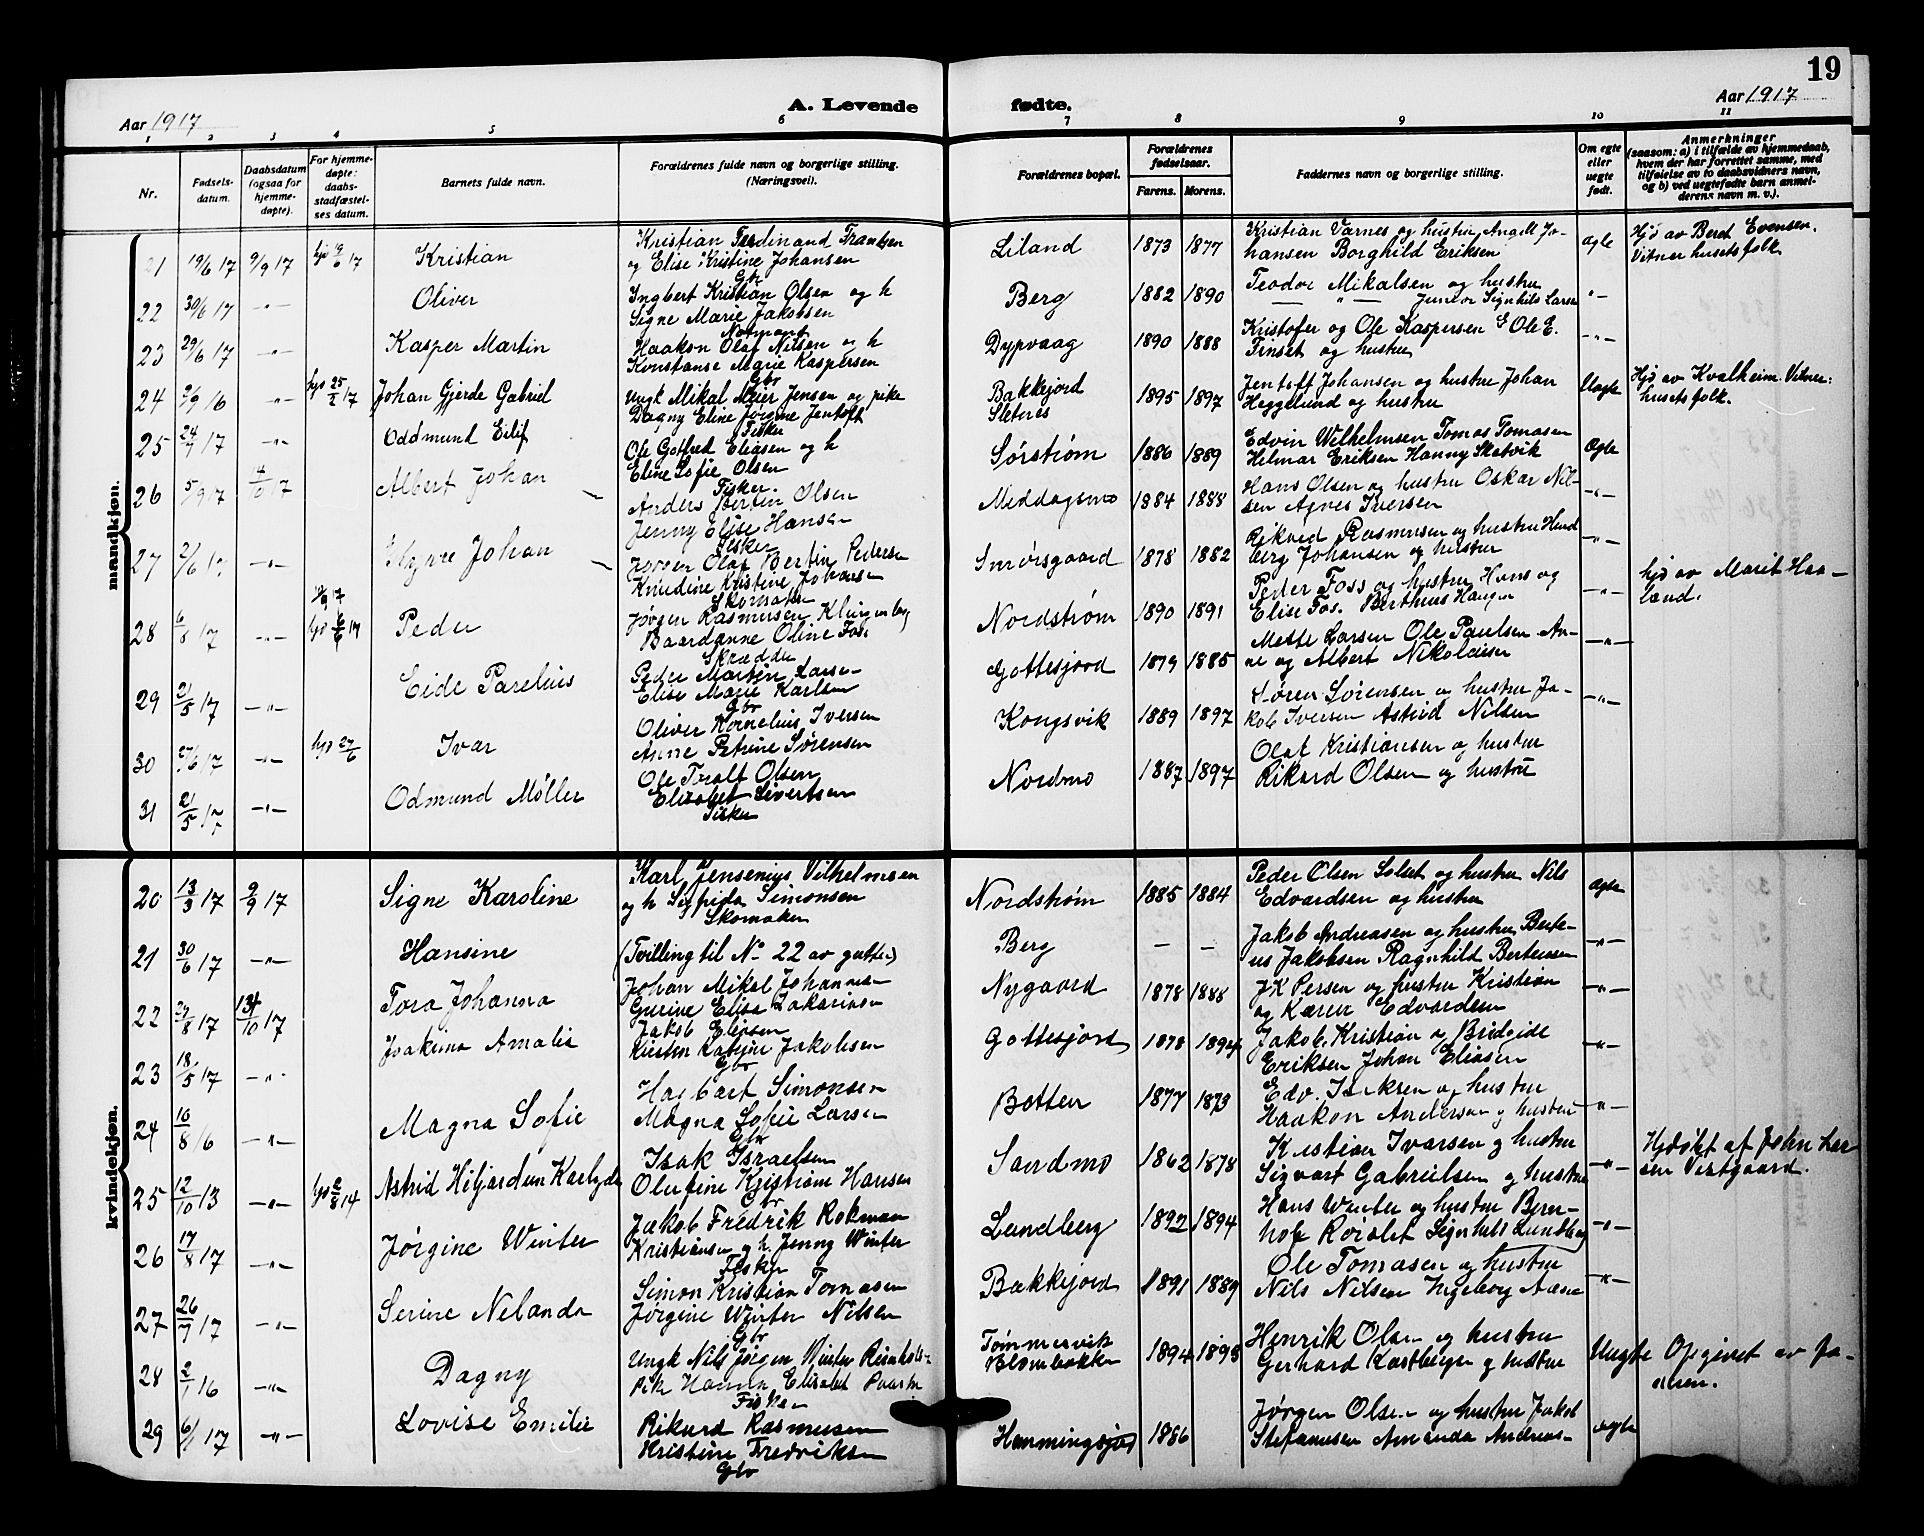 19
Aar 1917
A. Levende fødte.
Aar 1917
1 2 3 4 5 6 7 8 9 10 11
Nr.
Fødsels-
datum.
Daabsdatum
(ogsaa for
hjemme-
døpte).
For hjemme-
døpte:
daabs-
stadfæstel-
ses datum.
Barnets fulde navn.
Forældrenes fulde navn og borgerlige stilling.
(Næringsvei).
Forældrenes bopæl.
Forældrenes
fødselsaar.
Farens. Morens.
Faddernes navn og borgerlige stilling.
Om egte
eller
uegte
født.
Anmerkninger
(saasom: a) i tilfælde av hjemmedaab,
hvem der har forrettet samme, med
tilføielse av to daabsvidners navn,
og b) ved uegtefødte barn anmel-
derens navn m. v.).
mandkjøn.
21 19/6 17 9/9 17 Kristian
Kristian Ferdinand Frantzen
og Elise Kristine Johansen
Gbr
Liland 1873 1877
Kristian Varnes og hustru Angell Jo-
hansen Borghild Eriksen
ægte
Hjd av Beret Evensen.
Vitner husets folk
22 30/6 17 -"- Oliver
Ingbert Kristian Olsen og h
Signe Marie Jakobsen
Berg 1882 1890
Teodor Mikalsen og hustru
— " — Junior Signhild Larsen
-"-
23 29/6 17 -"- Kasper Martin
Haakon Olaf Nilsen og h
Konstanse Marie Kaspersen
Gbr
Dypvaag 1890 1888
Kristofer og Ole Kaspersen & Ole E.
Finset og hustru
-"-
24 2/9 16 -"- hjd 25/2 17 Johan Gjerde Gabriel
Ungk Mikal Meier Jensen og pike
Dagny Eline Jørgine Jentoft
Fisker
Bakkejord
Sletnes
1895 1897
Jentoft Johansen og hustru Johan
Heggelund og hustru
Uægte
Hjd av Kvalheim. Vitner:
husets folk.
25 24/7 17 -"- Oddmund Eilif
Ole Gotfred Eliasen og h
Eline Sofie Olsen
Fisker.
Sørstrøm 1886 1889
Edvin Wilhelmsen Tomas Tomasen
Hilmar Eriksen Hanny Skatvik
Ægte
26 5/9 17 14/10 17 Albert Johan
Anders Bertin Olsen
Jenny Elise Hansen
Fisker
Meddagsmo 1884 1888
Hans Olsen og hustru Oskar Nil-
sen Agnes Iversen
-"-
27 2/6 17 -"- Johan
Jørgen Olaf Bertin Pedersen
Knudine Kristine Johansen
Skomaker
Smørsgaard 1878 1882
Rikard Rasmusen og hustru Hund
berg Johansen og hustru
-"-
28 6/8 17 -"- Peder
Jørgen Rasmusen Klingenberg
Baardanne Oline Foss
Skrædder
Nordstrøm 1890 1891
Peder Foss og hustru Hans og
Elise Fos. Bertheus Haugen
-"-
hjd av Marit Haa-
land.
29 21/5 17 -"- Eide Parelius
Peder Martin Larsen
Elise Marie Karlsen
Gbr
Gottesjord 1879 1885
Mette Larsen Ole Paulsen An-
ne og Albert Nikolaisen
-"-
30 27/6 17 -"- hjd 27/6 Ivar
Oliver Kornelius Iversen
Anne Petrine Sørensen
Kongsvik 1889 1897
Søren Sørensen og hustru Ja-
kob Iversen Astrid Nilsen
-"-
31 21/5 17 -"- Odmund Møller
Ole Toralf Olsen
Elisabet Sivertsen
Fisker
Nordmo 1887 1897
Olaf Kristiansen og hustru
Rikard Olsen og hustru
kvindekjøn.
20 13/3 17 9/9 17 Signe Karoline
Karl Jensenius Vilhelmsen
og h Sigfrida Simonsen
Skomaker
Nordstrøm 1885 1884
Peder Olsen Solset og hustru Nils
Edvardsen og hustru
ægte
21 30/6 17 -"- Hansine
(Tvilling til No 22 av gutter)
Berg — —
Jakob Andreasen og hustru Berte-
us Jakobsen Ragnhild Berteussen
-"-
22 27/8 17 14/10 17 Tora Johanna
Johan Mikal Johannesen
Gurine Elisa Zakariasen
Nygaard 1878 1888
J K Persen og hustru Kristian
og Karen Edvardsen
-"-
23 18/5 17 -"- Joakima Amalie
Jakob Eliasen
Kirsten Katrine Jakobsen
Gbr
Gottesjord 1878 1894
Jakob, Kristian og Bridgide
Eriksen Johan Eliasen
-"-
24 16/8 16 -"- Magna Sofie
Hagbart Simonsen
Magna Sofie Larsen
Gbr
Botten 1877 1873
Edv. Isaksen og hustru
Haakon Andersen og hustru
-"-
25 12/10 13 -"- hjd 2/8 14 Astrid Hiljardine Karlyde
Isak Israelsen
Olufine Kristiane Hansen
Gbr
Sandmo 1862 1878
Kristian Ivarsen og hustru
Sigvart Gabrielsen og hustru
-"-
Hjdøpt af John Lar
sen Vestgaard.
26 17/8 17 -"- Jørgine Winter
Jakob Fredrik Rokman
Kristiansen og h. Jenny Winter
Fisker
Lundberg 1892 1894
Hans Winter og hustru Bern-
hof Roialet Signhild Lundberg
-"-
27 26/7 17 -"- Serine Nelanda
Simon Kristian Tomasen
Jørgine Winter Nilsen
Gbr
Bakkejord 1891 1889
Ole Tomasen og hustru
Nils Nilsen Ingeborg Aasen
-"-
28 2/1 16 -"- Dagny
Ungk Nils Jørgen Winter Reinholt-
Pik Hanna Elisabet
Fisker
Tømmervik
Blombakken
1894 1893
Henrik Olsen og hustru
Gerhard Kastberger og hustru
Uægte
Opgivet av fa-
deren.
29 6/1 17 -"- Lovise Emilie
Rikard Rasmusen
Kristine Fredriksen
Gbr
Hemmingsjord 1886
Jørgen Olsen og hustru Jakob
Stefanusen Amanda Andreas-
ægte